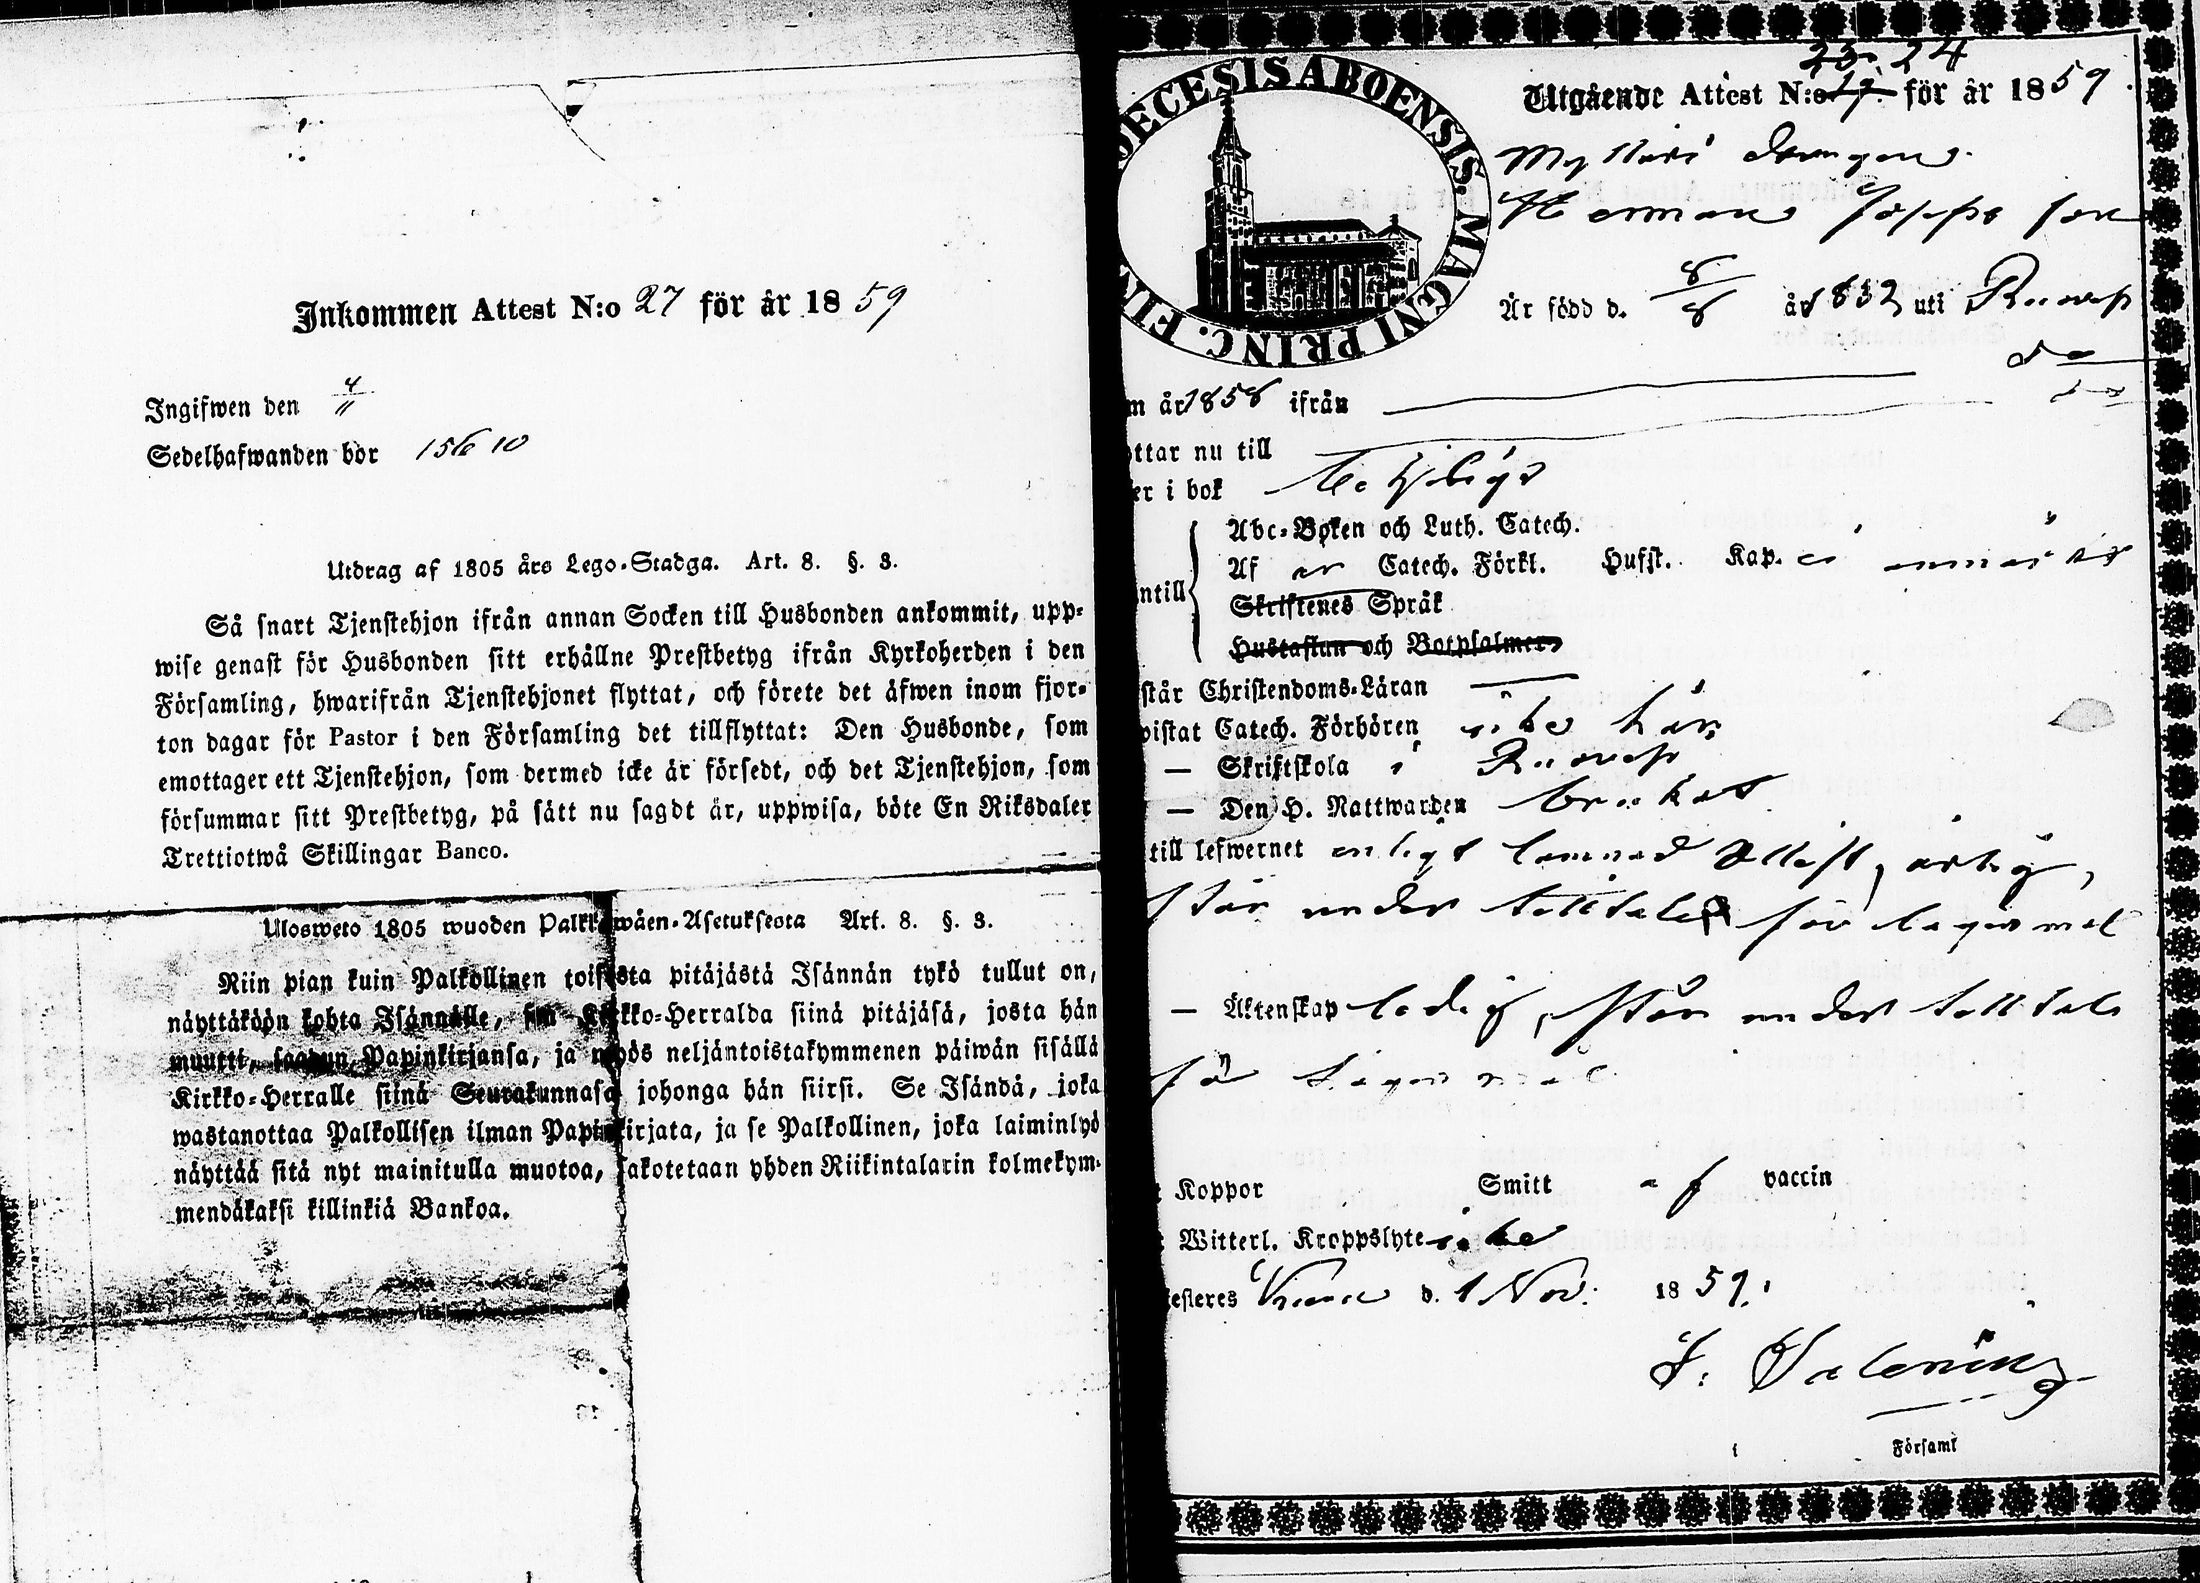 Inkommen Attest N:o 27 för år 1859
Ingifwen den 4/11
Sedelhafwanden bör 156 10
Utdrag af 1805 års Lego-Stadga. Art. 8. §. 3.
Så snart Tjenstehjon ifrån annan Socken till Husbonden ankommit, upp-
wise genast för Husbonden sitt erhållne Prestbetyg ifrån Kyrkoherden i den
Församling, hwarifrån Tjenstehjonet flyttat, och förete det äfwen inom fjor-
ton dagar för Pastor i den Församling det tillflyttat: Den Husbonde, som
emottager ett Tjenstehjon, som dermed icke är försedt, och det Tjenstehjon, som
försummar sitt Prestbetyg, på sätt nu sagdt är, uppwisa, böte En Riksdaler
Trettiotwå Skillingar Banco.
Ulosweto 1805 wuoden Palkkawäen-Asetuksesta Art. 8. §. 3.
Niin pian kuin Palkollinen toisesta pitäjästä Isännän tykö tullut on,
näyttäköön kohta Isännälle, sen Kirkko-Herralda siinä pitäjäsä, josta hän
muutti, saadun Papinkirjansa, ja myös neljäntoistakymmenen päiwän sisällä
Kirkko-Herralle siinä Seurakunnasa johonga hän siirsi. Se Isändä, joka
wastanottaa Palkollisen ilman Papinkirjata, ja se Palkollinen, joka laiminlyö
näyttää sitä nyt mainitulla muotoa, sakotetaan yhden Riikintalarin kolmekym-
mendäkaksi killinkiä Bankoa.
DECESIS ABOENSIS. MAGNI PRINC. FIN
23. 24
Utgående Attest N:o 19. för år 1859.
drengen
Herman Josefs son
Är född d. 8/8 år 1832 uti Ruovesi
m år 1858 ifrån
ottar nu till
er i bok
Abc-Boken och Luth. Catech.
Af Catech. Förkl. Husst. Kap.
ntill Skriftenes Språk
Hustaflan och Botpsalmer
står Christendoms-Läran
vistat Catech. Förhören icke här
— Skriftskola i Ruovesi
— Den H. Nattwarden brukat
till lefwernet enligt lemnad Attest, ärlig,
står under tilltal för lägersmål
— Äktenskap ledig, står under tilltal
för lägersmål
Koppor Smitt af vaccin
Witterl. Kroppslyte icke
testeres d. 1 Nov. 1859.
i Församl